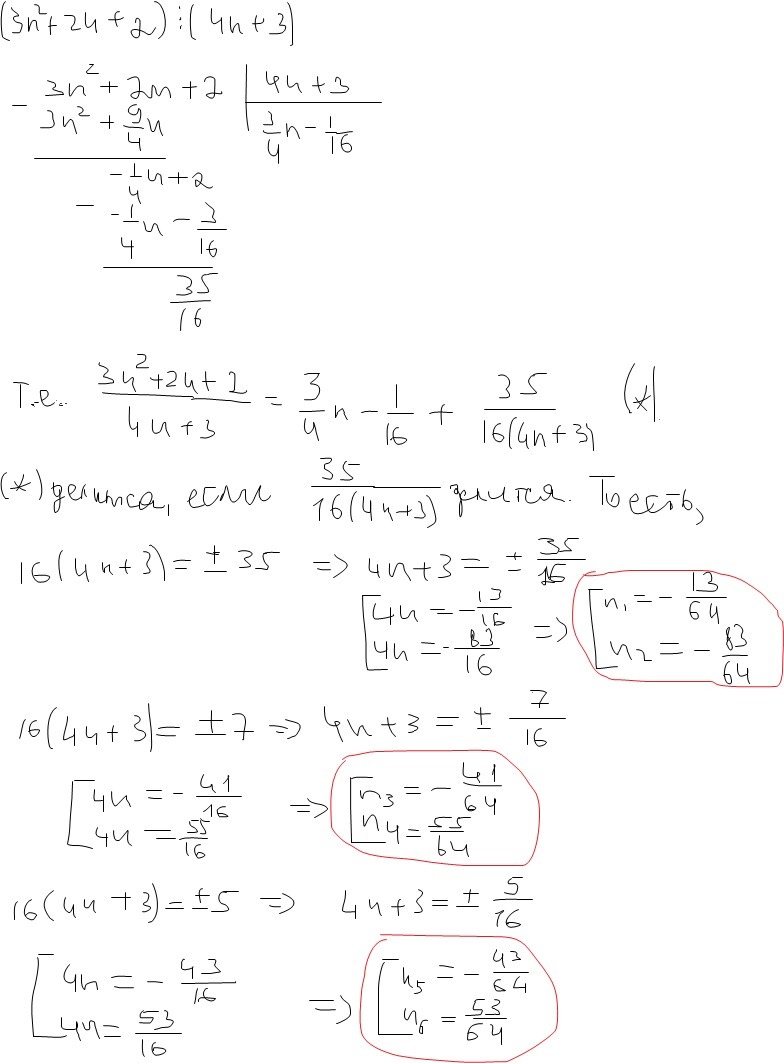 (3n²+2n+2)⋮(4n+3)
- 3n²+2n+2 | 4n+3
3n²+9/4n | 3/4n-1/16
-1/4n+2
- -1/4n-3/16
35/16
Т.е. (3n²+2n+2)/(4n+3) = 3/4n - 1/16 + 35/(16(4n+3)) (*).
(*) делится, если 35/(16(4n+3)) делится. То есть,
16(4n+3)=±35 => 4n+3=±35/16
[4n=-13/16 => [n₁=-13/64
4n=-83/16 n₂=-83/64
16(4n+3)=±7 => 4n+3=±7/16
[4n=-41/16 => [n₃=-41/64
4n=55/16 n₄=55/64
16(4n+3)=±5 => 4n+3=±5/16
[4n=-43/16 => [n₅=-43/64
4n=53/16 n₆=53/64